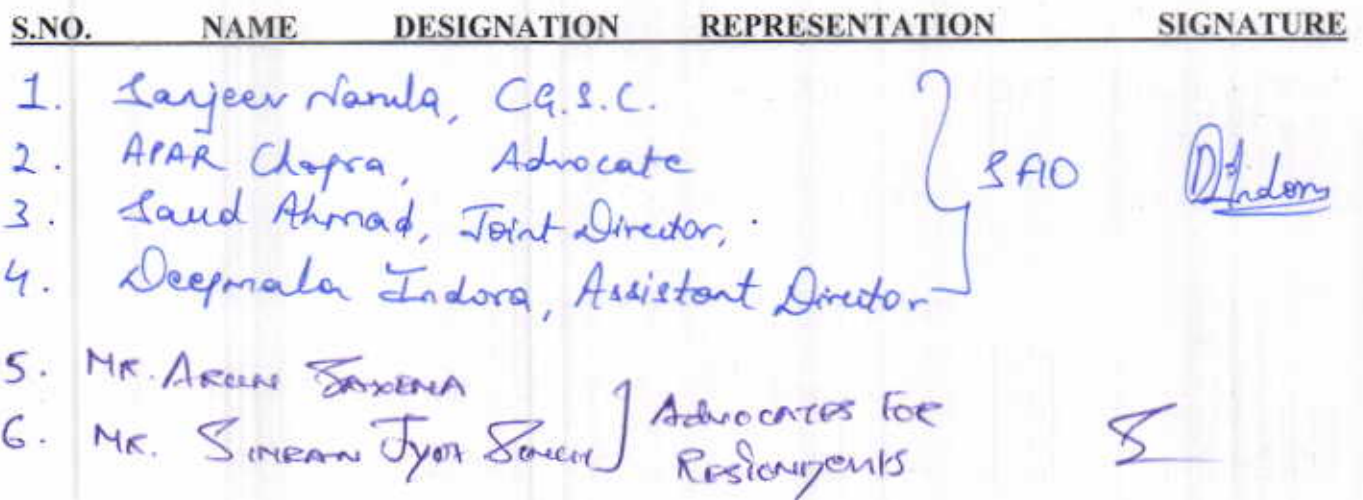 S.NO. NAME DESIGNATION REPRESENTATION SIGNATURE
1. Sanjeev Narula, C.G.S.C.
2. APAR Chopra, Advocate
3. Saud Ahmad, Joint Director,
4. Deepmala Indora, Assistant Director
SAO
D Indora
5. MR. ARUN SAXENA
6. MR. SIMRAN JYOT SINGH
ADVOCATES FOR
RESPONDENTS